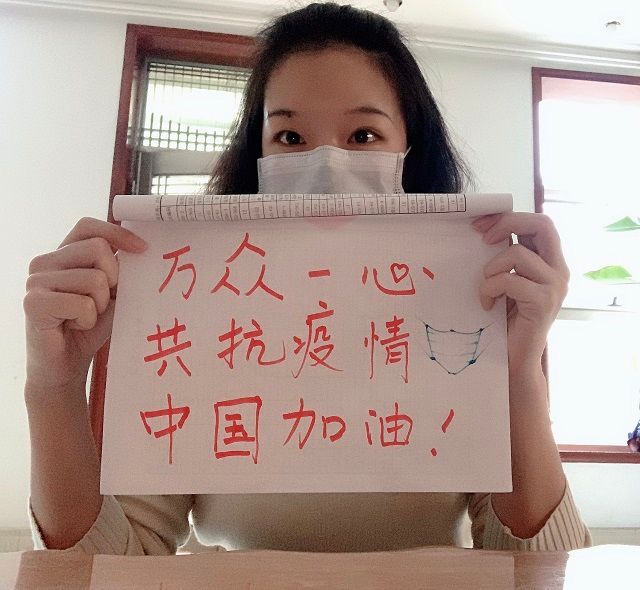 万众一心
共抗疫情
中国加油！